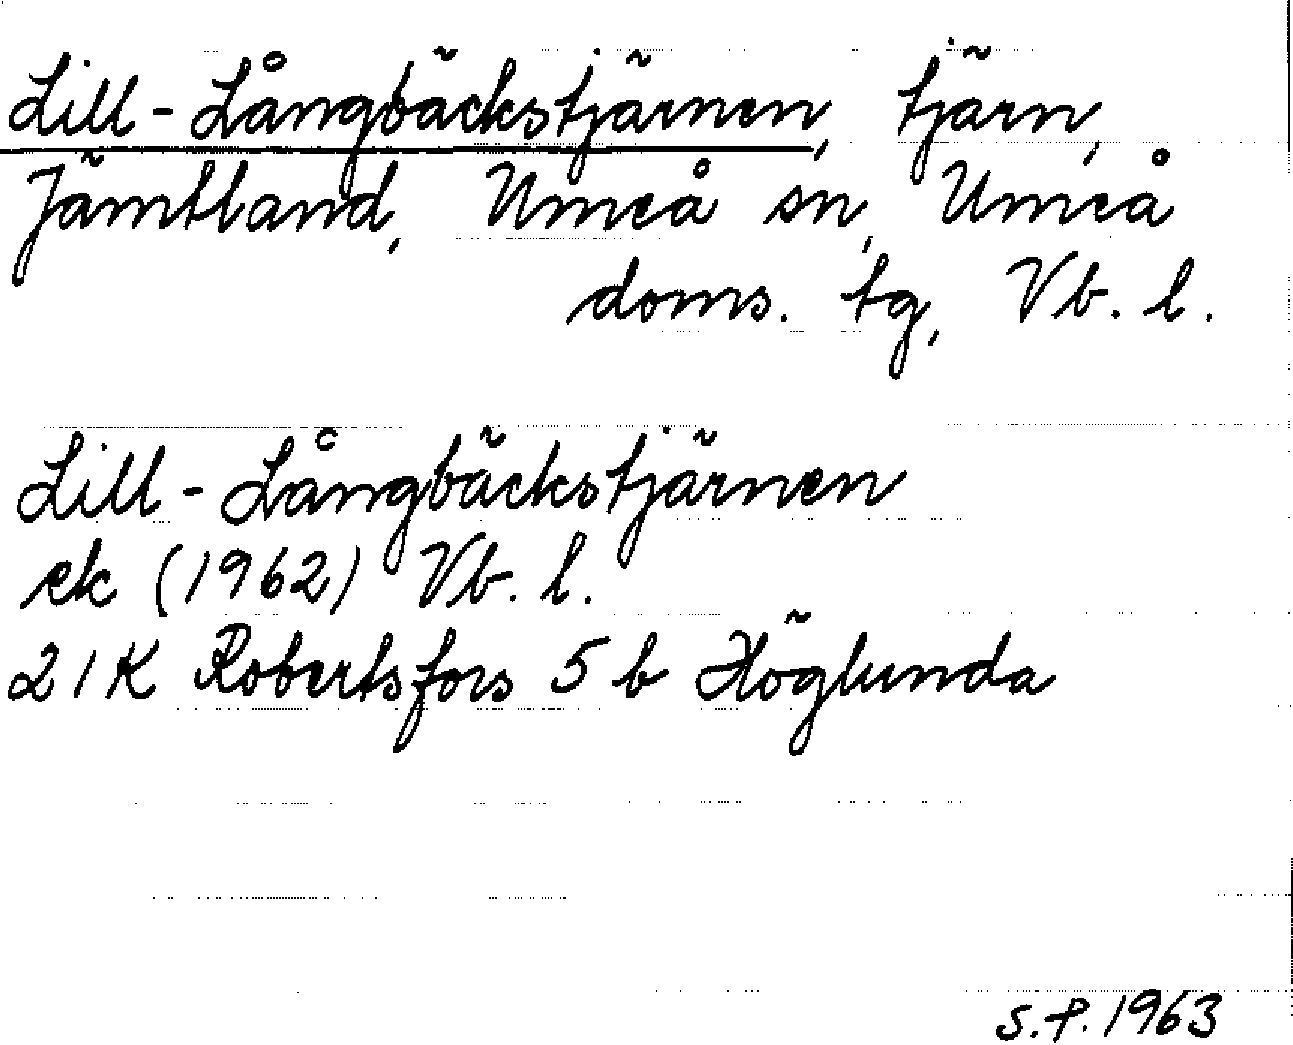 Lill-Långbäckstjärnen, tjärn,
Jämtland, Umeå sn, Umeå
doms. tg, Vb. l.
Lill-Långbäckstjärnen
ek (1962) Vb. l.
21K Robertsfors 5 b Höglunda
S.P. 1963